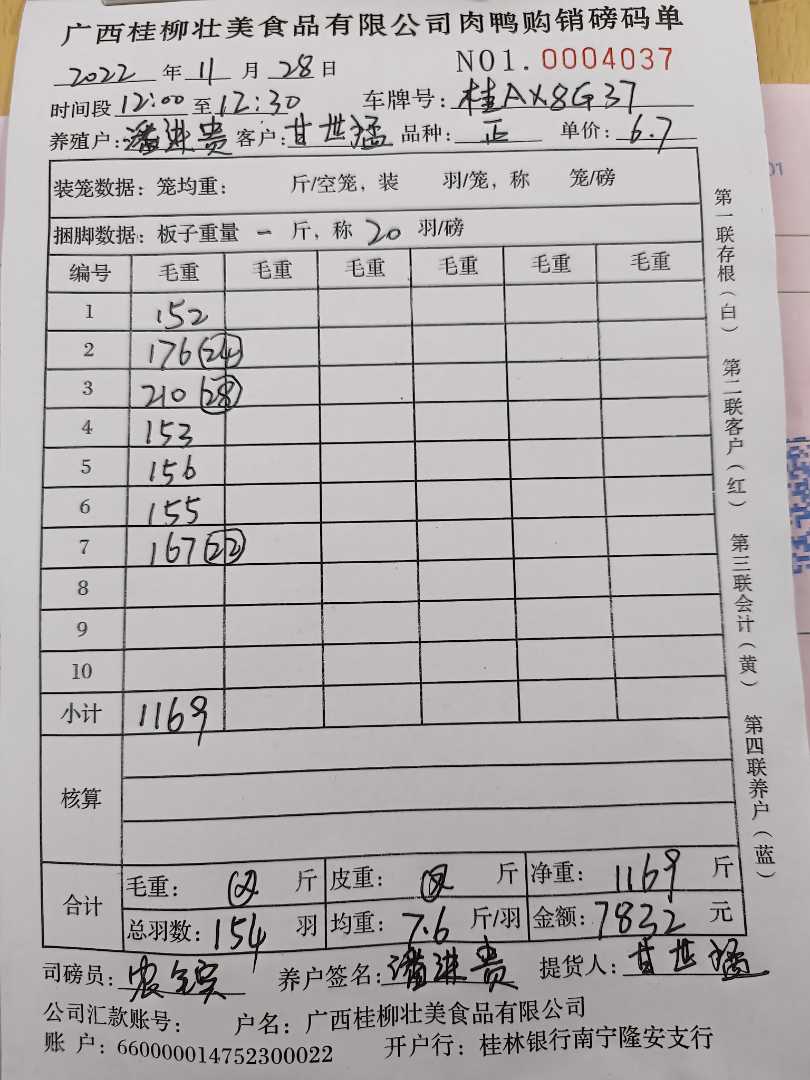 广西桂柳壮美食品有限公司肉鸭购销磅码单
2022 年 11 月 28 日 NO1. 0004037
时间段 12:00 至 12:30 车牌号: 桂AX8G37
养殖户: 潘进贵 客户: 甘世猛 品种: 正 单价: 6.7
装笼数据: 笼均重: 斤/空笼, 装 羽/笼, 称 笼/磅
捆脚数据: 板子重量 一 斤, 称 20 羽/磅
编号 毛重 毛重 毛重 毛重 毛重 毛重
1 152
2 176 (24)
3 210 (28)
4 153
5 156
6 155
7 167 (22)
8
9
10
小计 1169
核算
合计
毛重: 斤 皮重: 斤 净重: 1169 斤
总羽数: 154 羽 均重: 7.6 斤/羽 金额: 7832 元
司磅员: 养户签名: 潘进贵 提货人: 甘世猛
公司汇款账号: 户名: 广西桂柳壮美食品有限公司
账 户: 660000014752300022 开户行: 桂林银行南宁隆安支行
第一联存根(白) 第二联客户(红) 第三联会计(黄) 第四联养户(蓝)
01